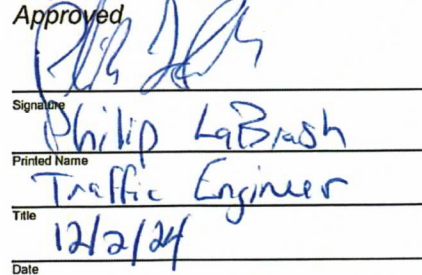 Approved
Signature
Philip LaBrash
Printed Name
Traffic Engineer
Title
12/2/24
Date